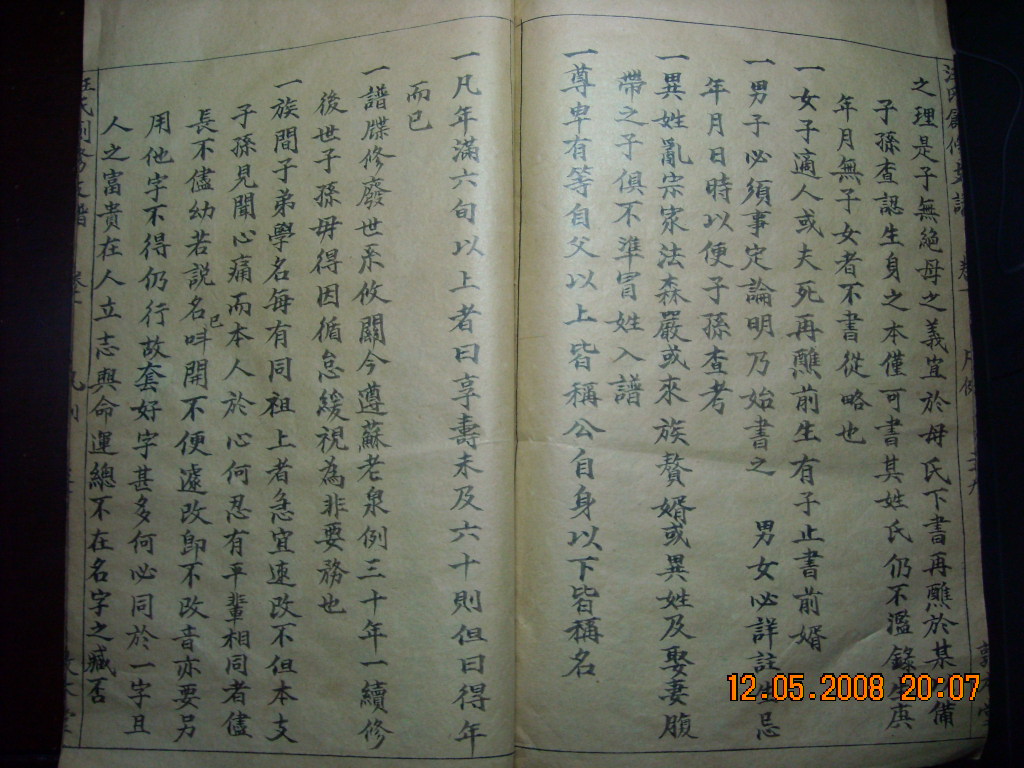 之理是子無絕母之義宜於母氏下書再醮於某備
子孫查認生身之本僅可書其姓氏仍不濫錄生庚
年月無子女者不書從略也
一女子適人或夫死再醮前生有子止書前婿
一男子必須事定論明乃始書之 男女必詳註生忌
年月日時以便子孫查考
一異姓亂宗家法森嚴或來族贅婿或異姓及娶妻腹
帶之子俱不準冒姓入譜
一尊卑有等自父以上皆稱公自身以下皆稱名
一凡年滿六旬以上者曰享壽未及六十則但曰得年
而已
一譜牒修廢世系攸關今遵蘇老泉例三十年一續修
後世子孫毋得因循怠緩視為非要務也
一族間子弟學名每有同祖上者急宜速改不但本支
子孫見聞心痛而本人於心何忍有平輩相同者儘
長不儘幼若説名已呌開不便遽改卽不改音亦要另
用他字不得仍行故套好字甚多何必同於一字且
人之富貴在人立志與命運總不在名字之臧否
汪氏 修支譜
12.05.2008 20:07